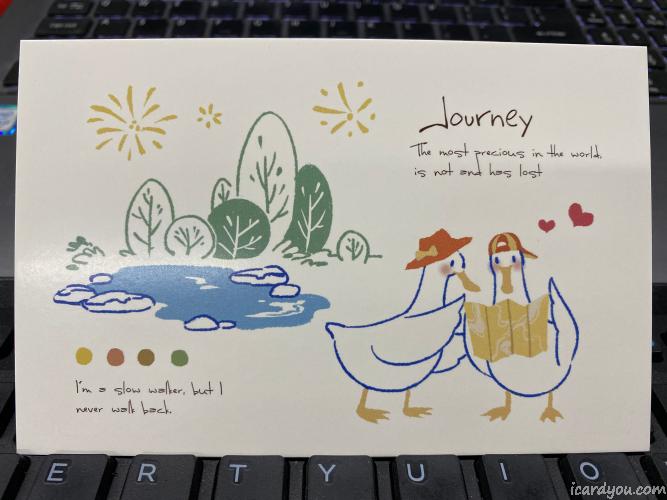 Journey
The most precious in the world,
is not and has lost
I'm a slow walker, but I
never walk back.
E R T Y U I O
icardyou.com